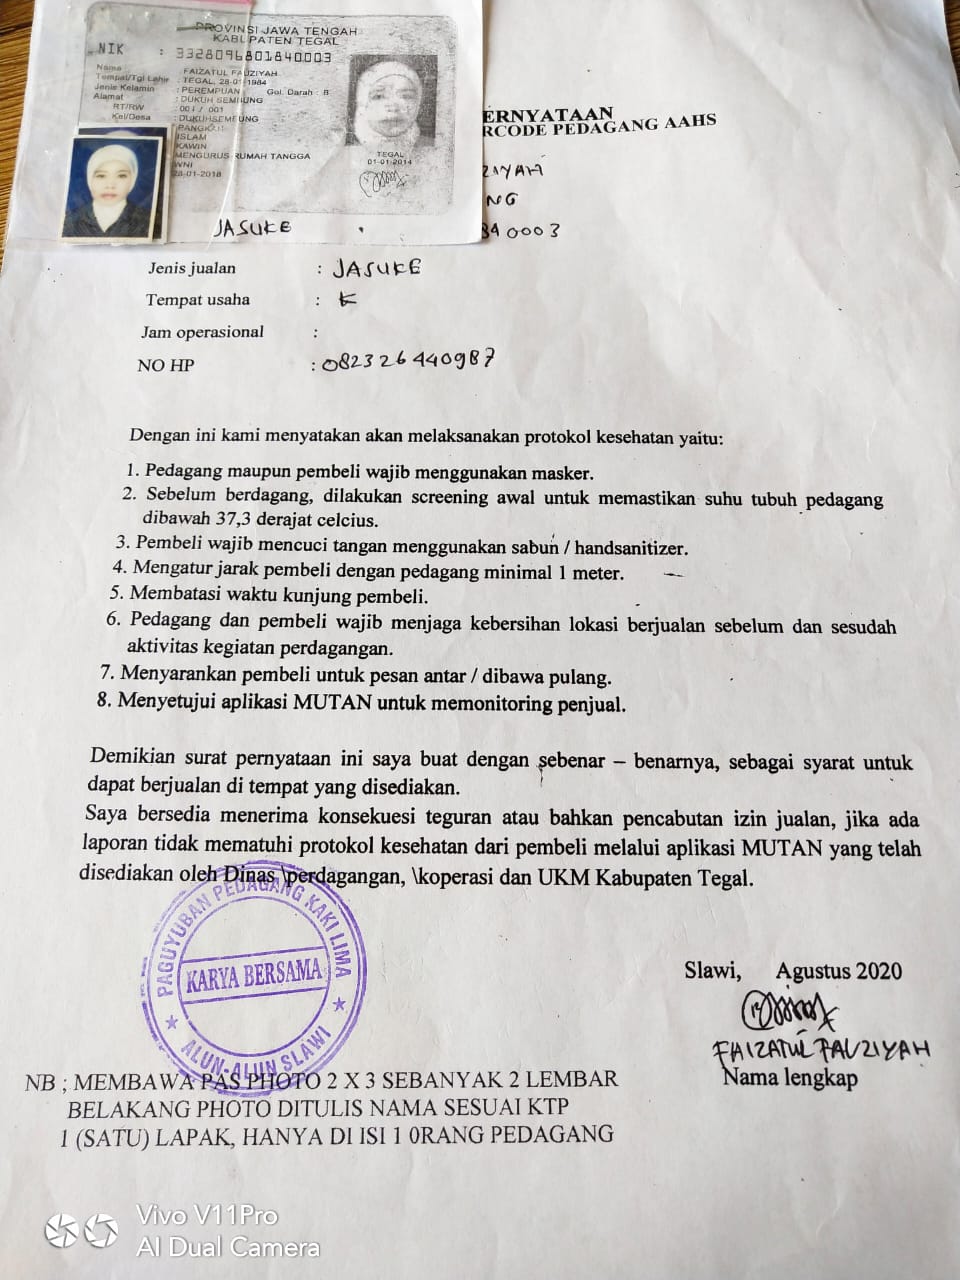 PROVINSI JAWA TENGAH
KABUPATEN TEGAL
NIK : 3328096801840003
Nama : FAIZATUL FAUZIYAH
Tempat/Tgl Lahir : TEGAL, 28-01-1984
Jenis Kelamin : PEREMPUAN Gol. Darah : B
Alamat : DUKUH SEMBUNG
RT/RW : 001 / 001
Kel/Desa : DUKUHSEMBUNG
PANGKAH
ISLAM
KAWIN
MENGURUS RUMAH TANGGA
WNI
28-01-2018
TEGAL
01-01-2014
JASUKE
ERNYATAAN
RCODE PEDAGANG AAHS
ZIYAH
NG
840003
Jenis jualan : JASUKE
Tempat usaha :
Jam operasional :
NO HP : 082326440987
Dengan ini kami menyatakan akan melaksanakan protokol kesehatan yaitu:
1. Pedagang maupun pembeli wajib menggunakan masker.
2. Sebelum berdagang, dilakukan screening awal untuk memastikan suhu tubuh pedagang
dibawah 37,3 derajat celcius.
3. Pembeli wajib mencuci tangan menggunakan sabun / handsanitizer.
4. Mengatur jarak pembeli dengan pedagang minimal 1 meter.
5. Membatasi waktu kunjung pembeli.
6. Pedagang dan pembeli wajib menjaga kebersihan lokasi berjualan sebelum dan sesudah
aktivitas kegiatan perdagangan.
7. Menyarankan pembeli untuk pesan antar / dibawa pulang.
8. Menyetujui aplikasi MUTAN untuk memonitoring penjual.
Demikian surat pernyataan ini saya buat dengan sebenar – benarnya, sebagai syarat untuk
dapat berjualan di tempat yang disediakan.
Saya bersedia menerima konsekuesi teguran atau bahkan pencabutan izin jualan, jika ada
laporan tidak mematuhi protokol kesehatan dari pembeli melalui aplikasi MUTAN yang telah
disediakan oleh Dinas \perdagangan, \koperasi dan UKM Kabupaten Tegal.
PAGUYUBAN PEDAGANG KAKI LIMA
KARYA BERSAMA
ALUN-ALUN SLAWI
Slawi, Agustus 2020
FAIZATUL FAUZIYAH
Nama lengkap
NB ; MEMBAWA PAS PHOTO 2 X 3 SEBANYAK 2 LEMBAR
BELAKANG PHOTO DITULIS NAMA SESUAI KTP
1 (SATU) LAPAK, HANYA DI ISI 1 0RANG PEDAGANG
Vivo V11Pro
AI Dual Camera